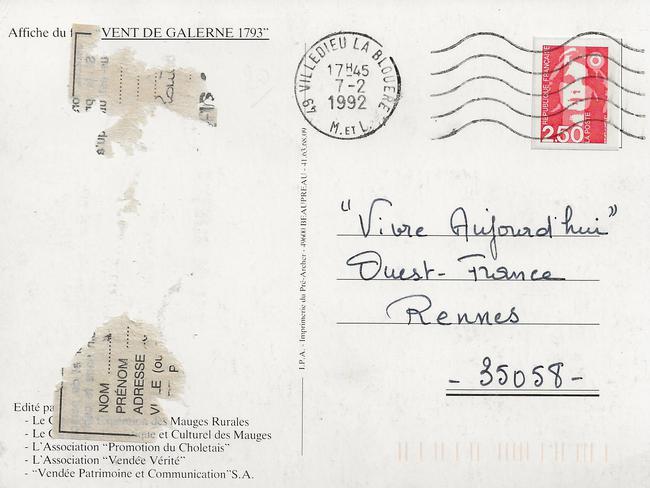 Affiche du VENT DE GALERNE 1793"
49 VILLEDIEU LA BLOUERE
17H45
7-2
1992
M. ET L.
REPUBLIQUE FRANÇAISE
2,50
LA POSTE
"Vivre Aujourd'hui"
Ouest-France
Rennes
- 35058 -
I.P.A. - Imprimerie du Pré-Archer - 49600 BEAUPREAU - 41.63.68.09
NOM
PRÉNOM
ADRESSE
(ou
P
Edité
- Le des Mauges Rurales
- Le et Culturel des Mauges
- L'Association "Promotion du Choletais"
- L'Association "Vendée Vérité"
- "Vendée Patrimoine et Communication"S.A.